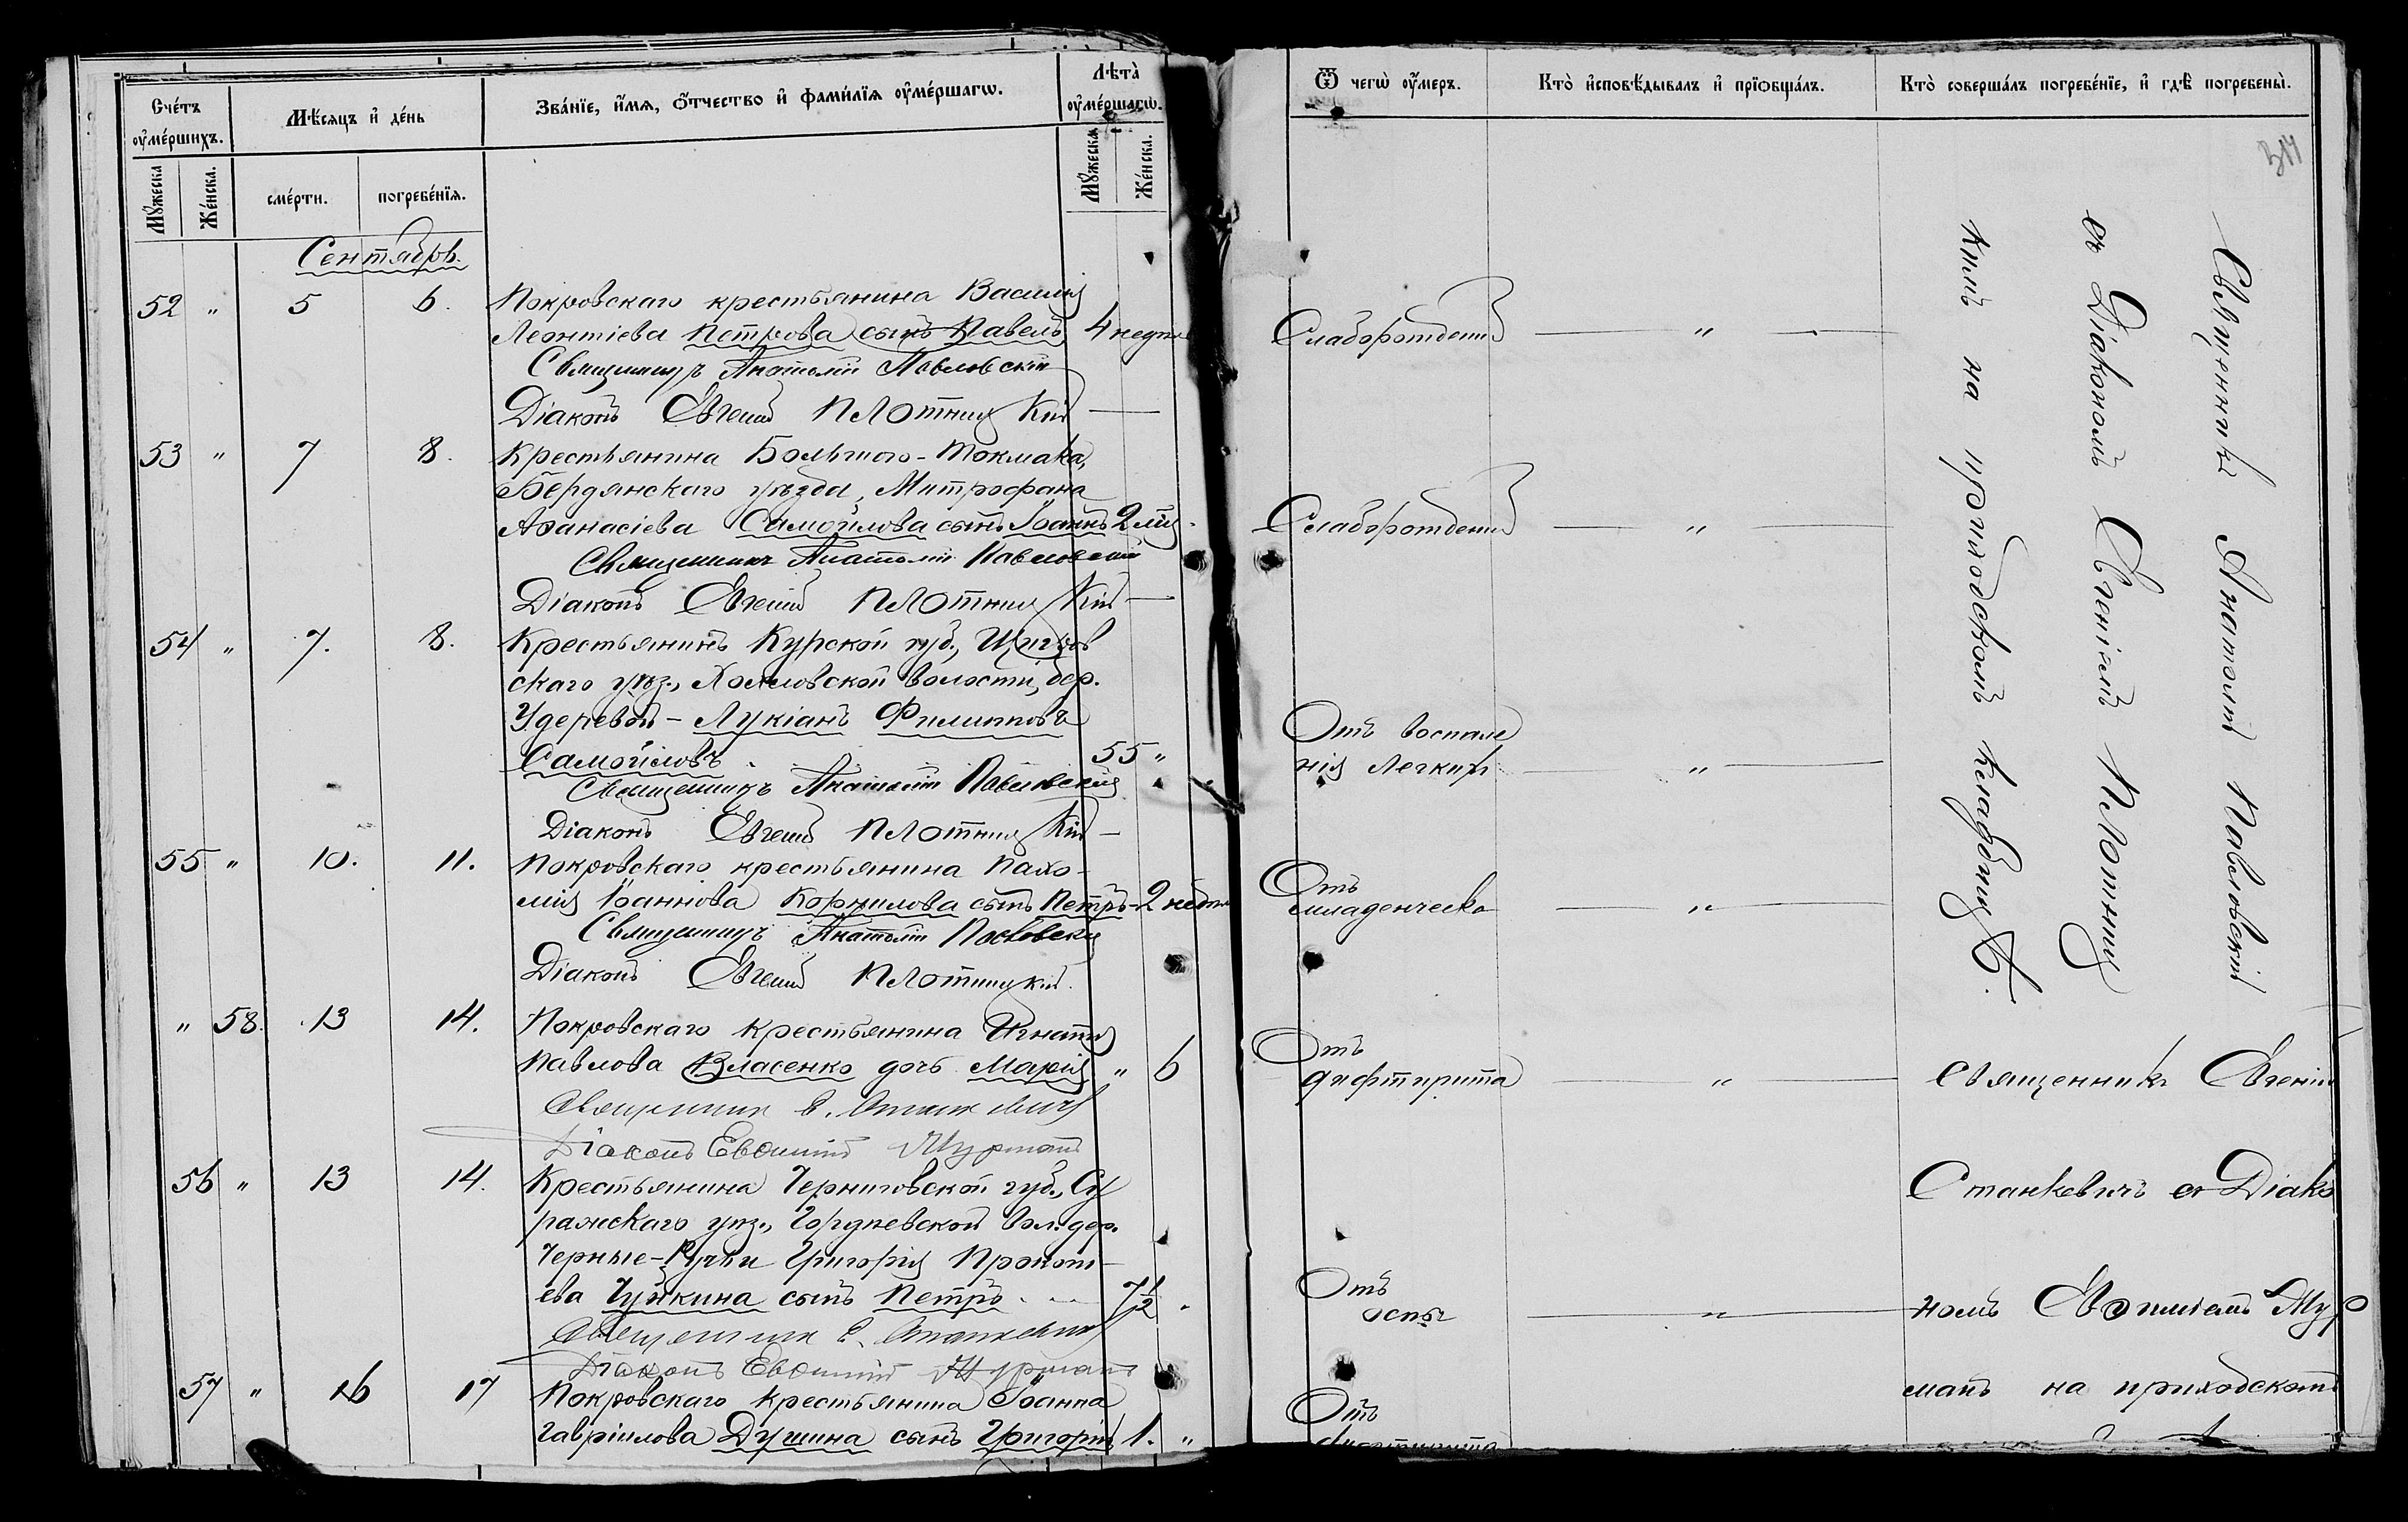 Счётъ оумершихъ.
Мѣсяцъ и день
Званіе, имя, отчество и фамилія оумершагω.
Лѣта оумершагω.
Мужеска
Женска.
смерти.
погребенія.
Мужеска
Женска.
Сентябрь.
52 " 5 6. Покровскаго крестьянина Василія
Леонтіева Петрова сынъ Павелъ 4 недѣли
Священникъ Анатолій Павловскій
Діаконъ Евгеній Плотницкій
53 " 7 8. Крестьянина Большого-Токмака,
Бердянскаго уѣзда, Митрофана
Аѳанасіева Самойлова сынъ Іоаннъ 2 мѣс.
Священникъ Анатолій Павловскій
Діаконъ Евгеній Плотницкій
54 " 7. 8. Крестьянинъ Курской губ., Щигров
скаго уѣз., волости, дер.
Удеревой - Лукіанъ Филипповъ
Самойловъ 55 "
Священникъ Анатолій Павловскій
Діаконъ Евгеній Плотницкій
55 " 10. 11. Покровскаго крестьянина Пахо-
мія Іоаннова Корнилова сынъ Петръ 2 недѣли
Священникъ Анатолій Павловскій
Діаконъ Евгеній Плотницкій.
" 58. 13 14. Покровскаго крестьянина Игнатія
Павлова Власенко дочь Марія " 6
Священникъ Е. Станкевичъ
Діаконъ Евѳимій Мурманъ
56 " 13 14. Крестьянина Черниговской губ., Су
ражскаго уѣз., Гордѣевской вол. дер.
Черные-Ручьи Григорія Прокопі-
ева Чуйкина сынъ Петръ 7 1/2 "
Священникъ Е. Станкевичъ
Діаконъ Евѳимій Мурманъ
57 " 16 17 Покровскаго крестьянина Іоанна
Гавріилова Душина сынъ Григорій 1. "
Ѿ чегω оумеръ.
Кто исповѣдывалъ и пріобщалъ.
Кто совершалъ погребеніе, и гдѣ погребены.
314
Слаборожденія "
Слаборожденія "
Отъ воспале
нія легкихъ "
Отъ
младенческа "
Отъ
дифтерита "
Отъ
оспы "
Отъ
дифтерита
Священникъ Анатолій Павловскій
съ Діакономъ Евгеніемъ Плотниц
кимъ на приходскомъ кладбищѣ.
Священникъ Евгеній
Станкевичъ съ Діако
номъ Евѳиміемъ Мур
манъ на приходскомъ